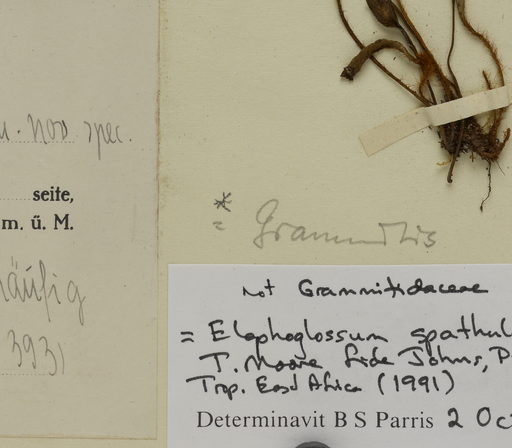 nov spec.
seite,
m. ü. M.
häufig
3931
* 
= Grammitis
not Grammitidaceae
= Elaphoglossum spathul
T. Moore fide Johns, P
Trop. East Africa (1991)
Determinavit B S Parris 2 Oc